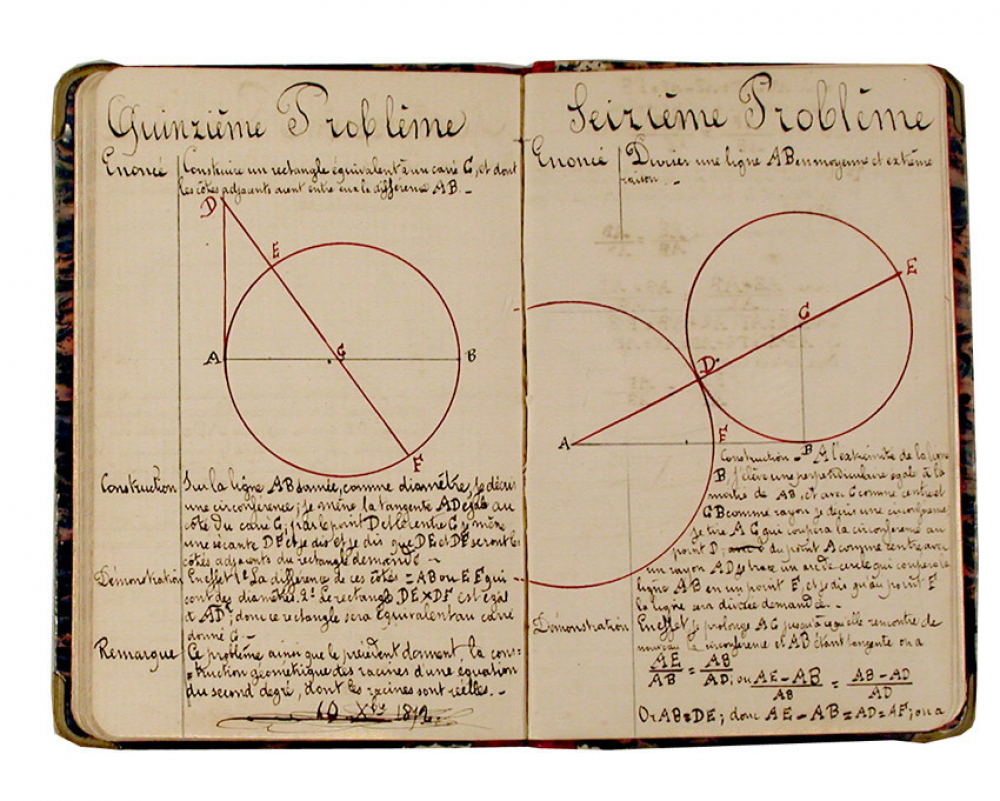 Quinzième Problème
Enoncé Construire un rectangle équivalent à un carré C, et dont
les côtés adjacents aient entre eux la différence AB. _
D
E
A
C
B
F
Construction Sur la ligne AB donnée, comme diamètre, je décris
une circonférence; je mène la tangente AD égale au
côté du carré C; par le point D et le centre C je mène
une sécante DF et je dis et je dis que DE et DF seront les
côtés adjacents du rectangle demandé _
Démonstration En effet 1º La différence de ces côtés = AB ou EF qui
sont des diamètres. 2º Le rectangle DE×DF est égal
à AD²; donc ce rectangle sera équivalent au carré
donné C. _
Remarque Ce problème ainsi que le précédent donnent la cons=
=truction géométrique des racines d'une équation
du second degré, dont les racines sont réelles. _
10 Xbre 18
Seizième Problème
Enoncé Diviser une ligne AB en moyenne et extrême
raison. _
E
C
D
A
F
B
Construction _ A l'extrémité de la ligne
B, j'élève une perpendiculaire égale à la
moitié de AB, et avec C comme centre et
CB comme rayon je décris une circonférence
je tire AC qui coupera la circonférence au
point D; du point A comme centre avec
un rayon AD je trace un arc de cercle qui coupera la
ligne AB en un point F, et je dis qu'au point F
la ligne sera divisée demandée. _
Démonstration En effet je prolonge AC jusqu'à ce qu'elle rencontre de
nouveau la circonférence et AB étant tangente on a
AE/AB = AB/AD; ou AE - AB/AB = AB - AD/AD
Or AB = DE; donc AE - AB = AD = AF; on a